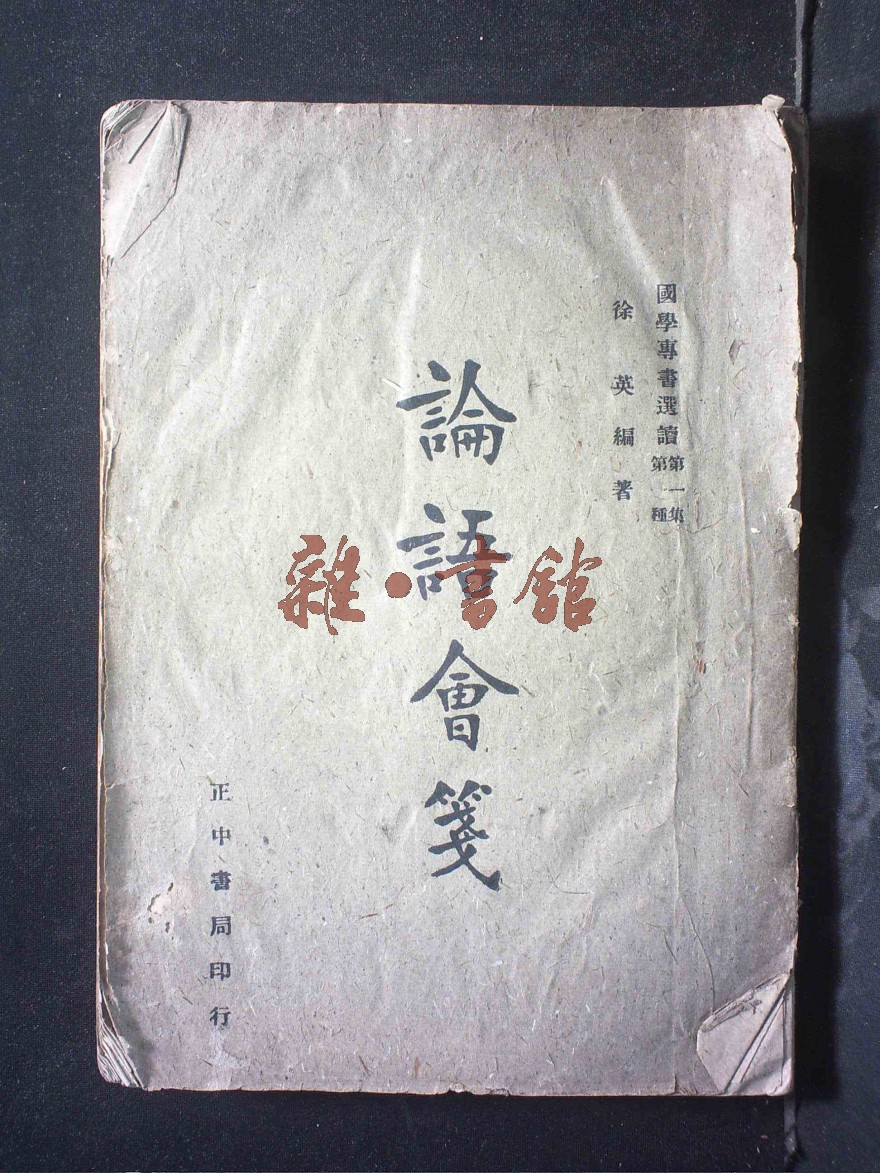 國學專書選讀 第一集 第一種
徐英編著
論語會箋
正中書局印行
雜·書館